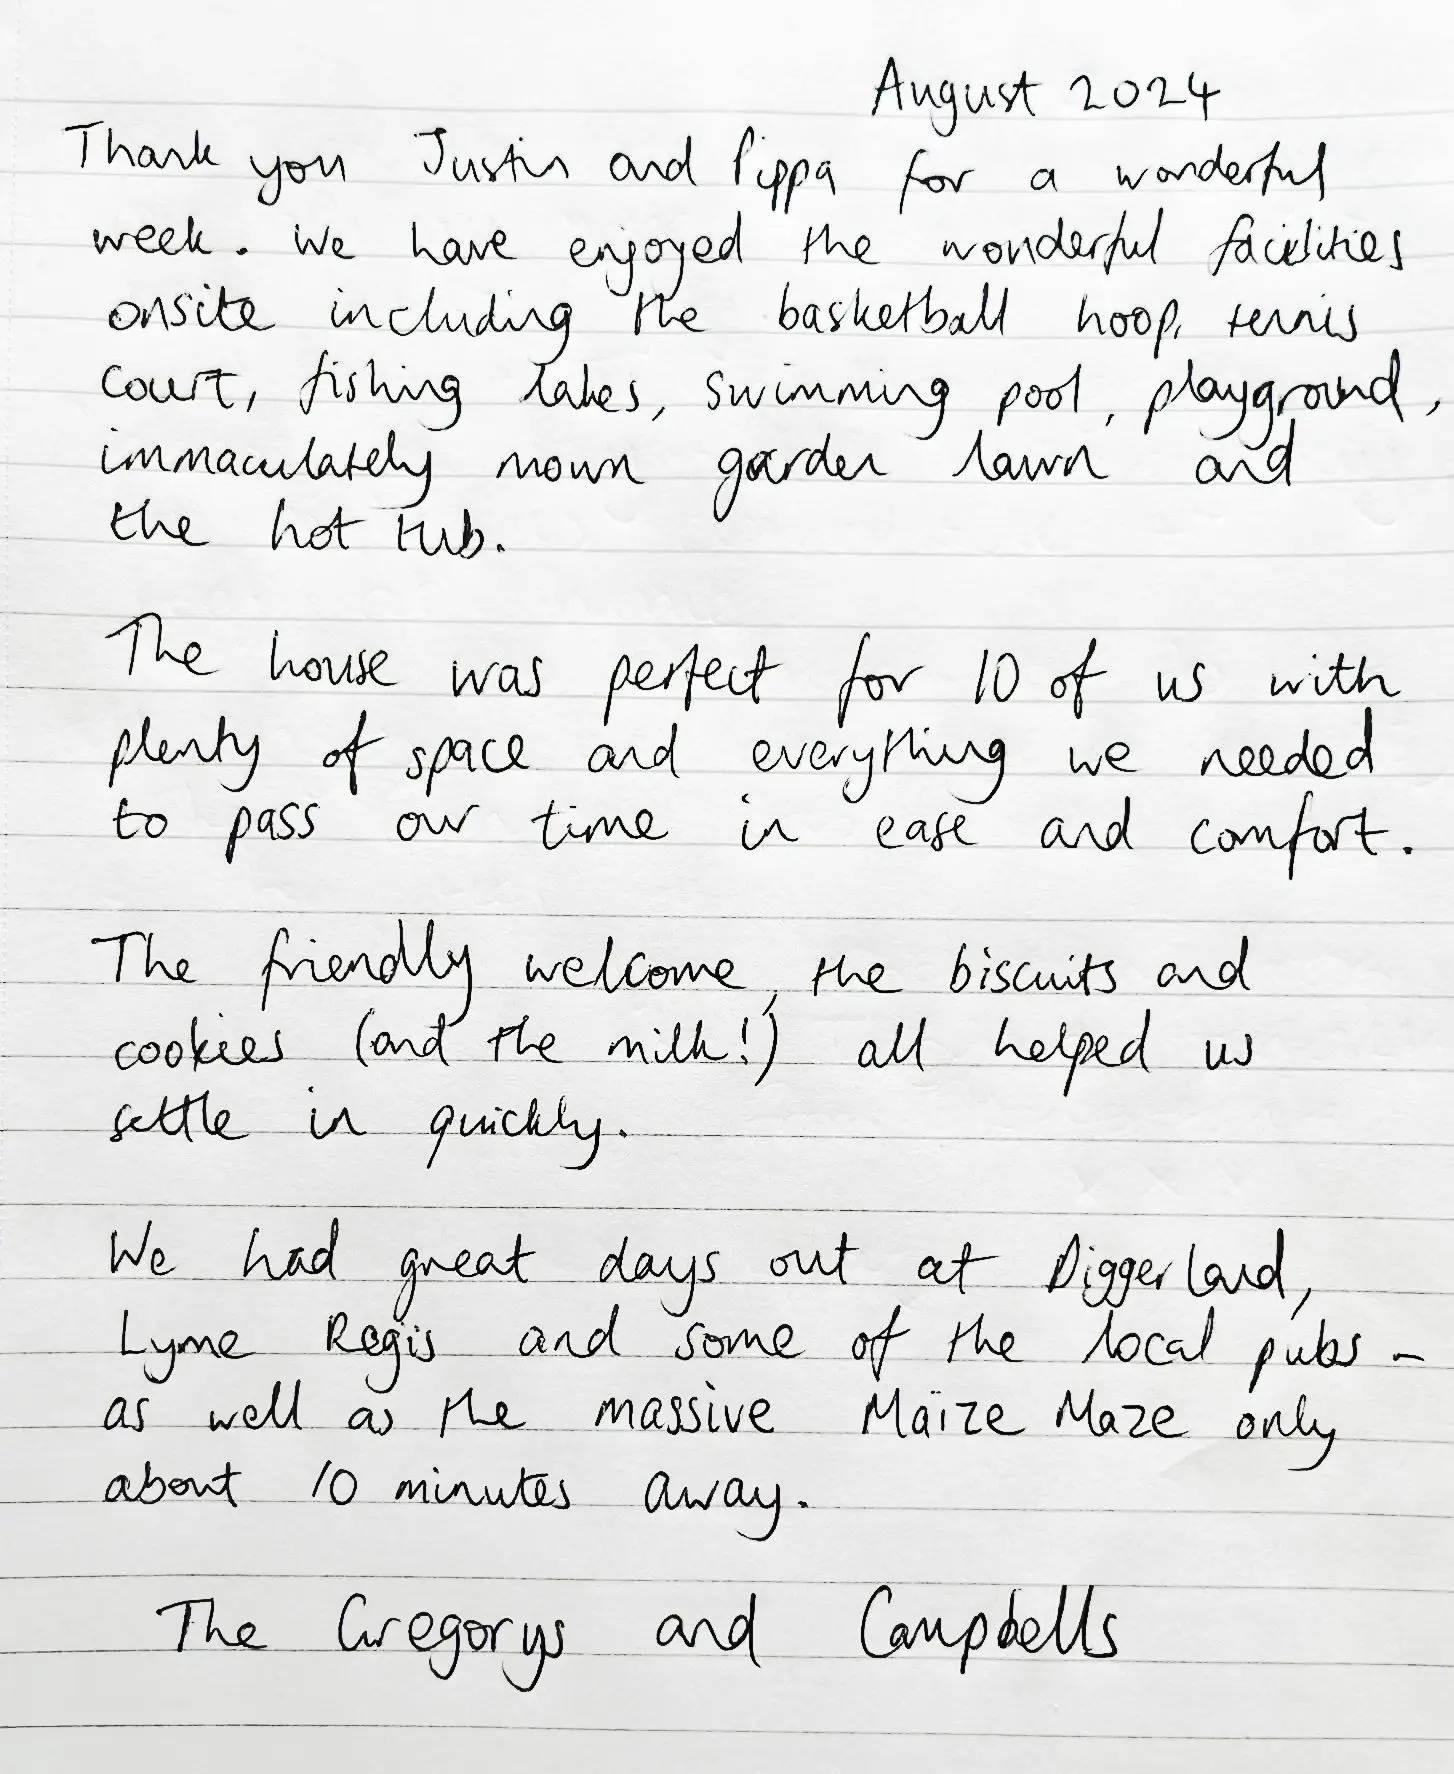 August 2024
Thank you Justin and Pippa for a wonderful
week. We have enjoyed the wonderful facilities
onsite including the basketball hoop, tennis
court, fishing lakes, swimming pool, playground,
immaculately mown garden lawn and
the hot tub.
The house was perfect for 10 of us with
plenty of space and everything we needed
to pass our time in ease and comfort.
The friendly welcome, the biscuits and
cookies (and the milk!) all helped us
settle in quickly.
We had great days out at Diggerland,
Lyme Regis and some of the local pubs -
as well as the massive Maize Maze only
about 10 minutes away.
The Gregorys and Campbells